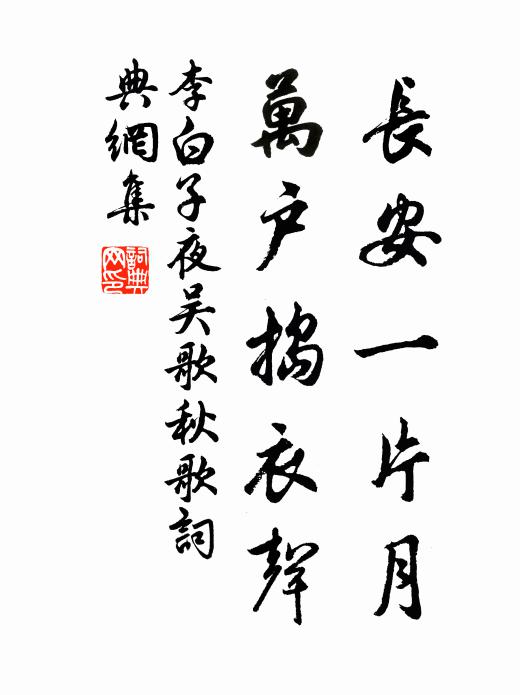 長安一片月
萬户搗衣聲
李白子夜吴歌秋歌詞
典網集
詞典网印